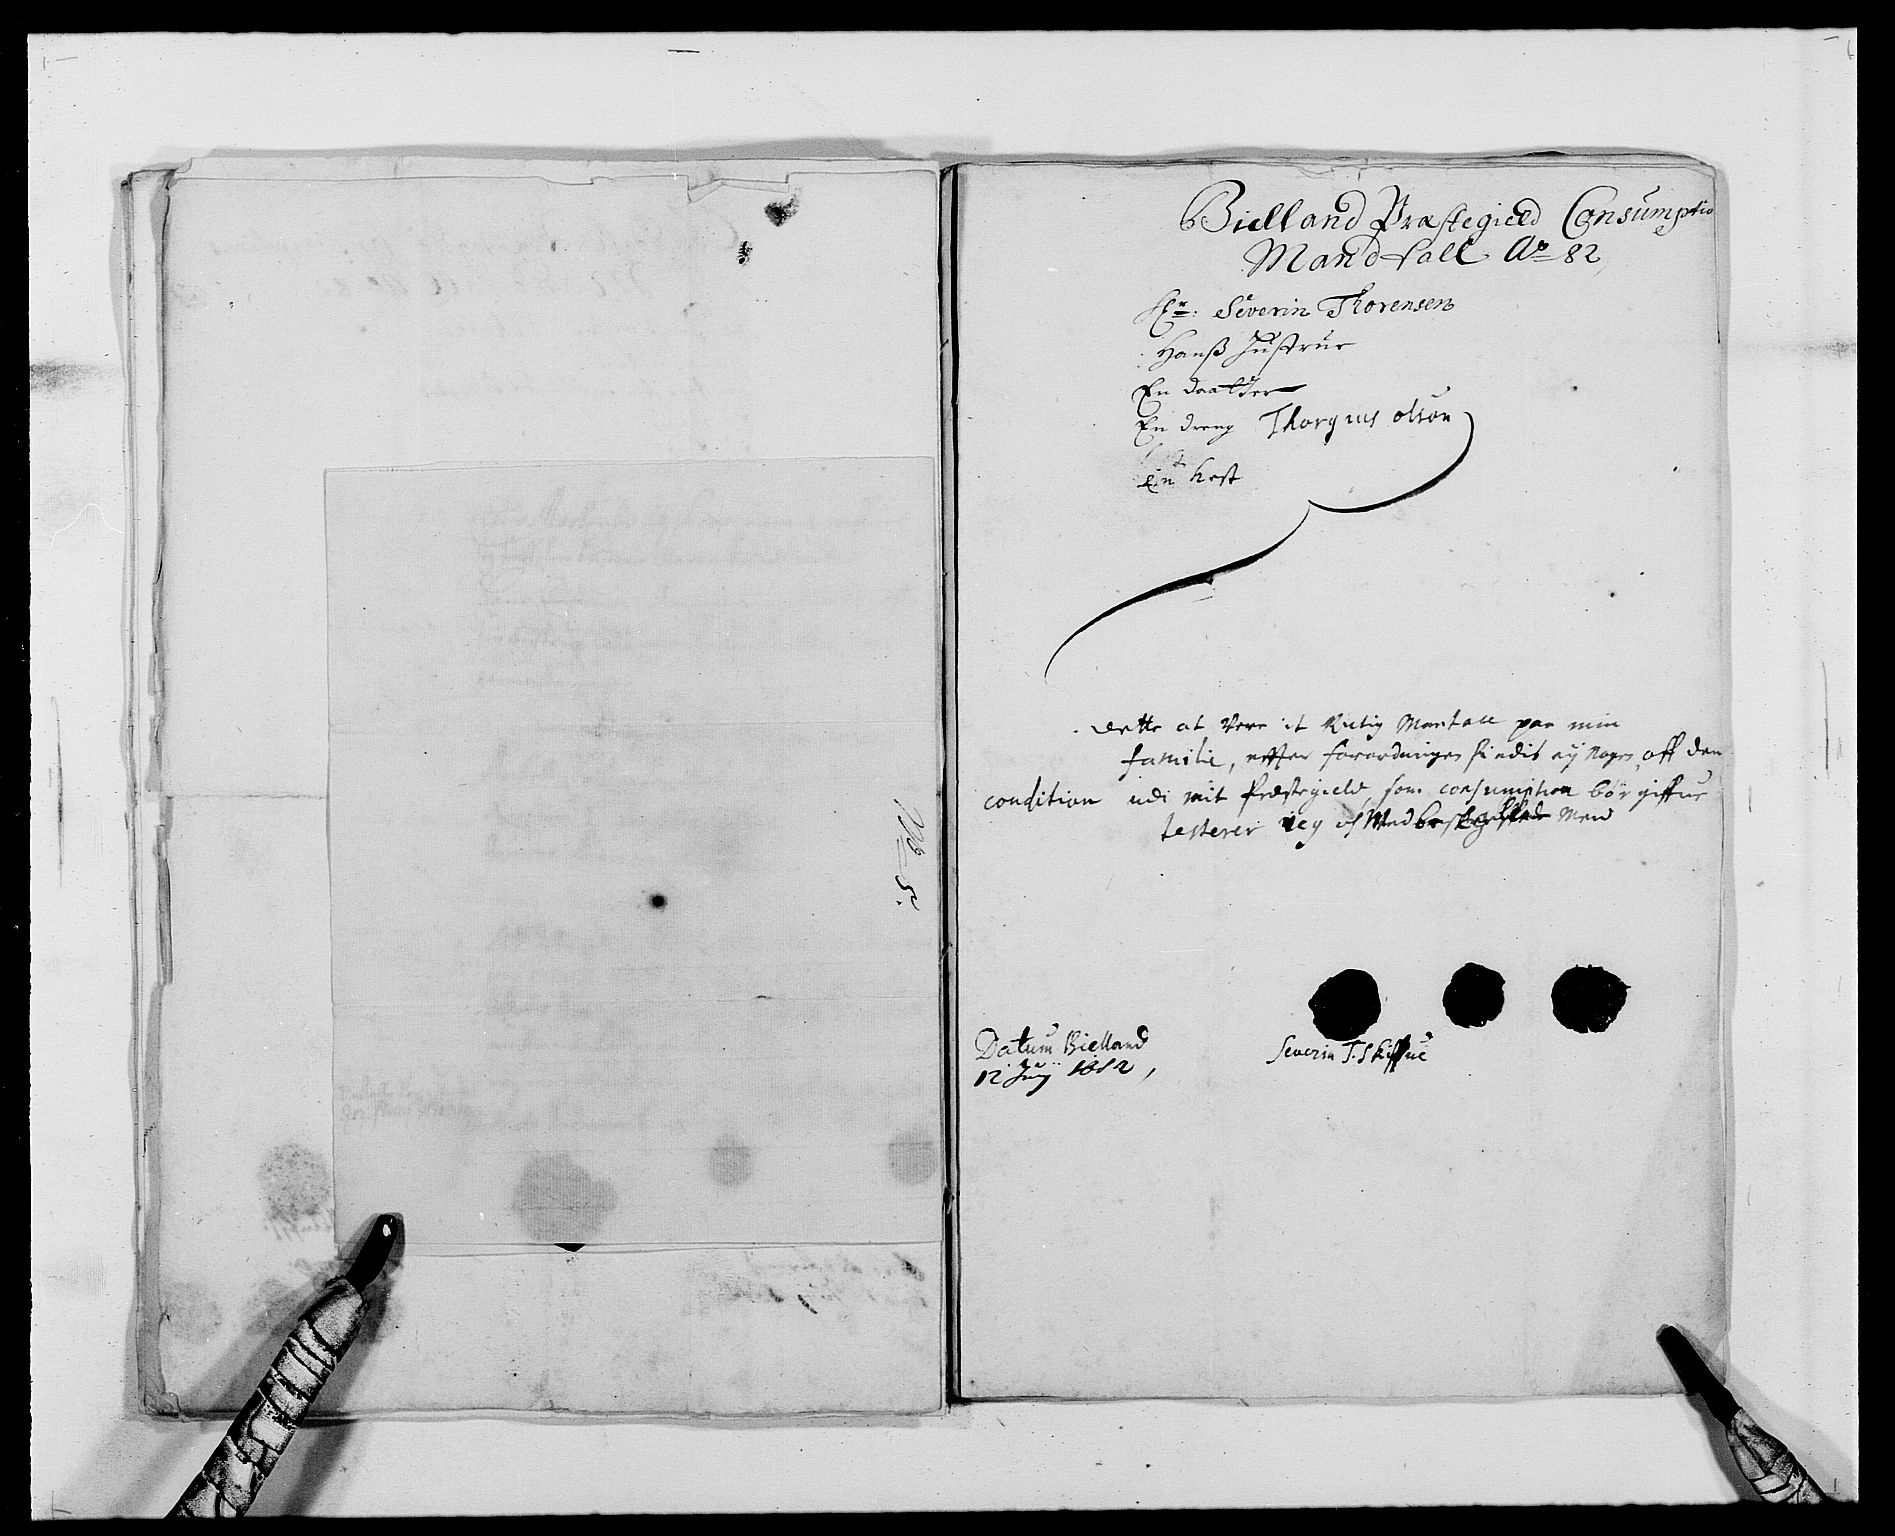 No 5.
Bielland Præstegield Consumption
Mandtall Ao 82
Hr: Severin Thorensen
Hanß Hustrue
En daatter
En dreng Thorgius olson
Ein hest
dette at Vere it Rictig Mantall paa min
familie, efter forordningen findis ey nogen, aff den
condition udi mit Præstegield, som consumption bör giffue
testerer ieg og Med Mend
Datum Bielland
12 Juny 1682,
Severin T. Skiffue